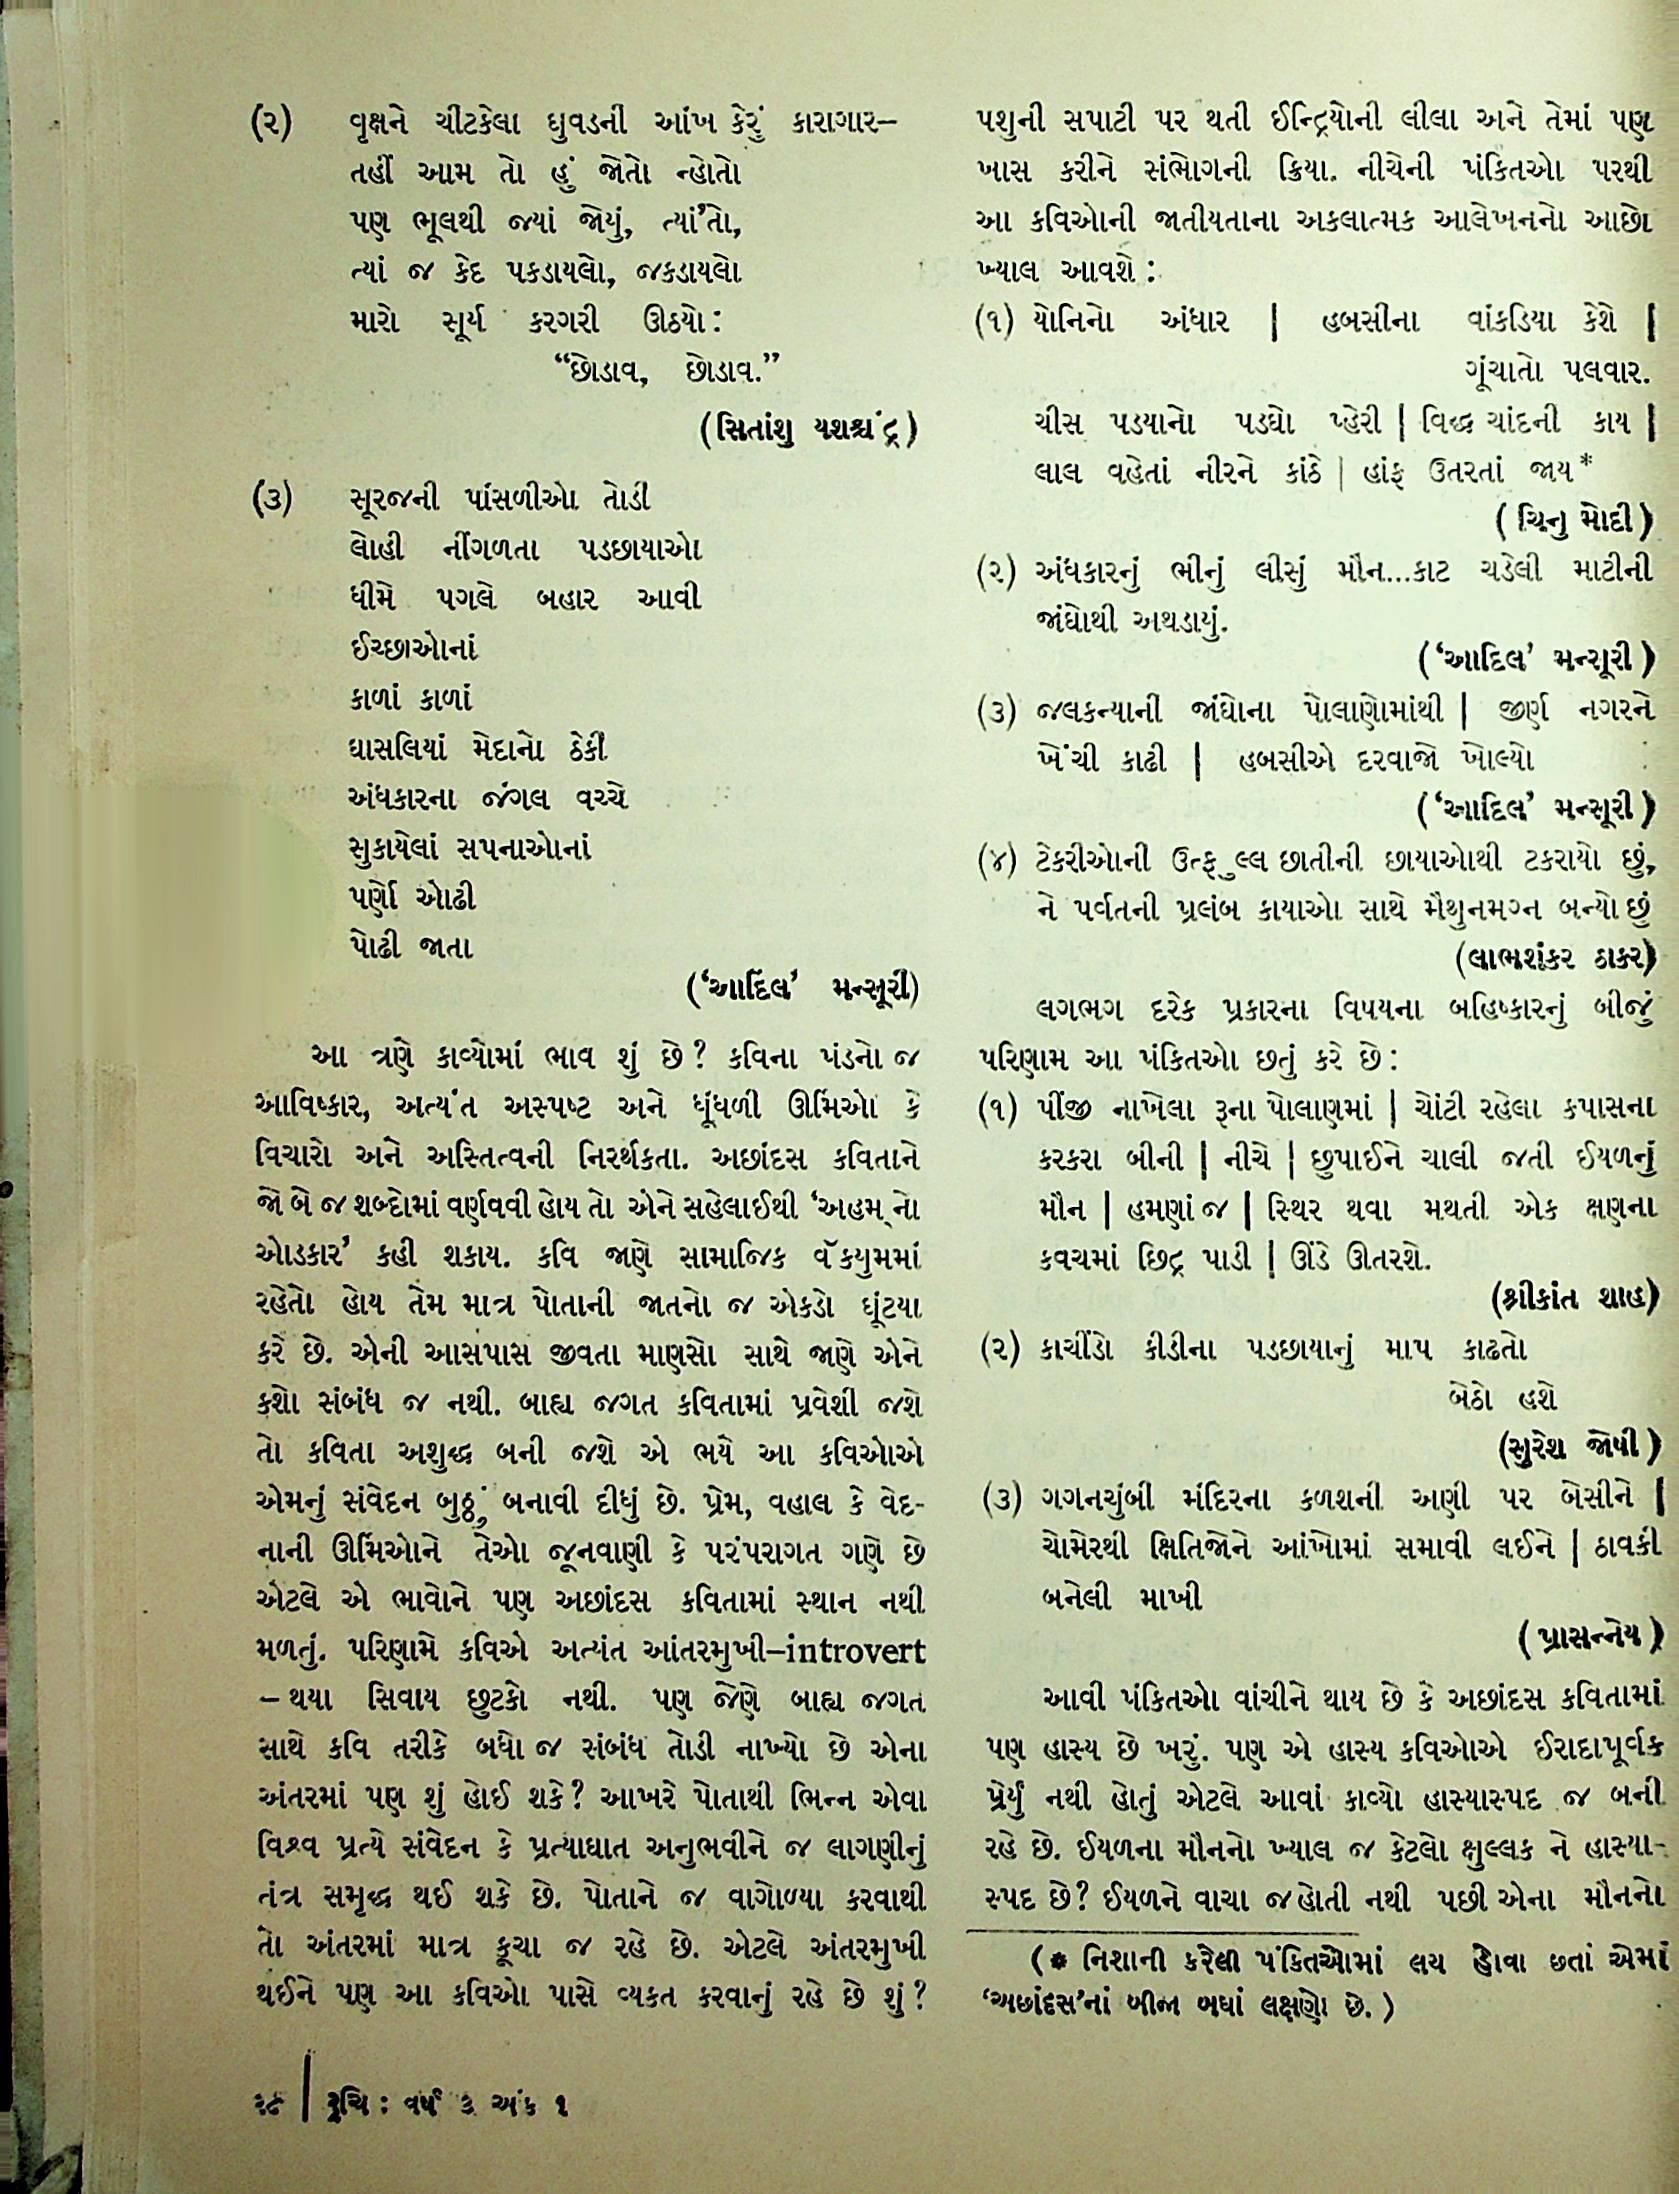 (૨) વૃક્ષને ચીટકેલા ઘુવડની આંખ કેરું કારાગાર–
તહીં આમ તો હું જોતો ન્હોતો
પણ ભૂલથી જ્યાં જોયું, ત્યાં’તો,
ત્યાં જ કેદ પકડાયલો, જકડાયલો
મારો સૂર્ય કરગરી ઊઠયો:
“છોડાવ, છોડાવ.”
(સિતાંશુ યશશ્ચંદ્ર)
(૩) સૂરજની પાંસળીઓ તોડી
લોહી નીંગળતા પડછાયાઓ
ધીમે પગલે બહાર આવી
ઈચ્છાઓનાં
કાળાં કાળાં
ઘાસલિયાં મેદાનો ઠેકી
અંધકારના જંગલ વચ્ચે
સુકાયેલાં સપનાઓનાં
પર્ણો ઓઢી
પોઢી જાતા
(‘આદિલ’ મન્સૂરી)
આ ત્રણે કાવ્યોમાં ભાવ શું છે? કવિના પંડનો જ
આવિષ્કાર, અત્યંત અસ્પષ્ટ અને ધૂંધળી ઊર્મિઓ કે
વિચારો અને અસ્તિત્વની નિરર્થકતા. અછાંદસ કવિતાને
જો બે જ શબ્દોમાં વર્ણવવી હોય તો એને સહેલાઈથી ‘અહમ્‌નો
ઓડકાર’ કહી શકાય. કવિ જાણે સામાજિક વૅકયુમમાં
રહેતો હોય તેમ માત્ર પોતાની જાતનો જ એકડો ઘૂંટયા
કરે છે. એની આસપાસ જીવતા માણસો સાથે જાણે એને
કશો સંબંધ જ નથી. બાહ્ય જગત કવિતામાં પ્રવેશી જશે
તો કવિતા અશુદ્ધ બની જશે એ ભયે આ કવિઓએ
એમનું સંવેદન બુઠ્ઠું બનાવી દીધું છે. પ્રેમ, વહાલ કે વેદ-
નાની ઊર્મિઓને તેઓ જૂનવાણી કે પરંપરાગત ગણે છે
એટલે એ ભાવોને પણ અછાંદસ કવિતામાં સ્થાન નથી
મળતું. પરિણામે કવિએ અત્યંત આંતરમુખી–introvert
– થયા સિવાય છુટકો નથી. પણ જેણે બાહ્ય જગત
સાથે કવિ તરીકે બધો જ સંબંધ તોડી નાખ્યો છે એના
અંતરમાં પણ શું હોઈ શકે? આખરે પોતાથી ભિન્ન એવા
વિશ્વ પ્રત્યે સંવેદન કે પ્રત્યાઘાત અનુભવીને જ લાગણીનું
તંત્ર સમૃદ્ધ થઈ શકે છે. પોતાને જ વાગોળ્યા કરવાથી
તો અંતરમાં માત્ર કૂચા જ રહે છે. એટલે અંતરમુખી
થઈને પણ આ કવિઓ પાસે વ્યકત કરવાનું રહે છે શું?
પશુની સપાટી પર થતી ઈન્દ્રિયોની લીલા અને તેમાં પણ
ખાસ કરીને સંભોગની ક્રિયા. નીચેની પંકિતઓ પરથી
આ કવિઓની જાતીયતાના અકલાત્મક આલેખનનો આછો
ખ્યાલ આવશે:
(૧) યોનિનો અંધાર | હબસીના વાંકડિયા કેશે |
ગૂંચાતો પલવાર.
ચીસ પડયાનો પડઘો પ્હેરી | વિદ્ધ ચાંદની કાય |
લાલ વહેતાં નીરને કાંઠે | હાંફ ઉતરતાં જાય*
(ચિનુ મોદી)
(૨) અંધકારનું ભીનું લીસું મૌન...કાટ ચડેલી માટીની
જાંઘોથી અથડાયું.
(‘આદિલ’ મન્સૂરી)
(૩) જલકન્યાની જાંઘોના પોલાણોમાંથી | જીર્ણ નગરને
ખેંચી કાઢી | હબસીએ દરવાજો ખોલ્યો
(‘આદિલ’ મન્સૂરી)
(૪) ટેકરીઓની ઉત્ફુલ્લ છાતીની છાયાઓથી ટકરાયો છું,
ને પર્વતની પ્રલંબ કાયાઓ સાથે મૈથુનમગ્ન બન્યો છું
(લાભશંકર ઠાકર)
લગભગ દરેક પ્રકારના વિષયના બહિષ્કારનું બીજું
પરિણામ આ પંકિતઓ છતું કરે છે:
(૧) પીંજી નાખેલા રૂના પોલાણમાં | ચોંટી રહેલા કપાસના
કરકરા બીની | નીચે | છુપાઈને ચાલી જતી ઈયળનું
મૌન | હમણાં જ | સ્થિર થવા મથતી એક ક્ષણના
કવચમાં છિદ્ર પાડી | ઊંડે ઊતરશે.
(શ્રીકાંત શાહ)
(૨) કાચીંડો કીડીના પડછાયાનું માપ કાઢતો
બેઠો હશે
(સુરેશ જોષી)
(૩) ગગનચુંબી મંદિરના કળશની અણી પર બેસીને |
ચોમેરથી ક્ષિતિજોને આંખોમાં સમાવી લઈને | ઠાવકી
બનેલી માખી
(પ્રાસન્નેય)
આવી પંકિતઓ વાંચીને થાય છે કે અછાંદસ કવિતામાં
પણ હાસ્ય છે ખરું. પણ એ હાસ્ય કવિઓએ ઈરાદાપૂર્વક
પ્રેર્યું નથી હોતું એટલે આવાં કાવ્યો હાસ્યાસ્પદ જ બની
રહે છે. ઈયળના મૌનનો ખ્યાલ જ કેટલો ક્ષુલ્લક ને હાસ્યા-
સ્પદ છે? ઈયળને વાચા જ હોતી નથી પછી એના મૌનનો
(* નિશાની કરેલી પંકિતઓમાં લય હોવા છતાં એમાં
‘અછાંદસ’નાં બીજા બધાં લક્ષણો છે.)
રુચિ: વર્ષ ૩ અંક ૧